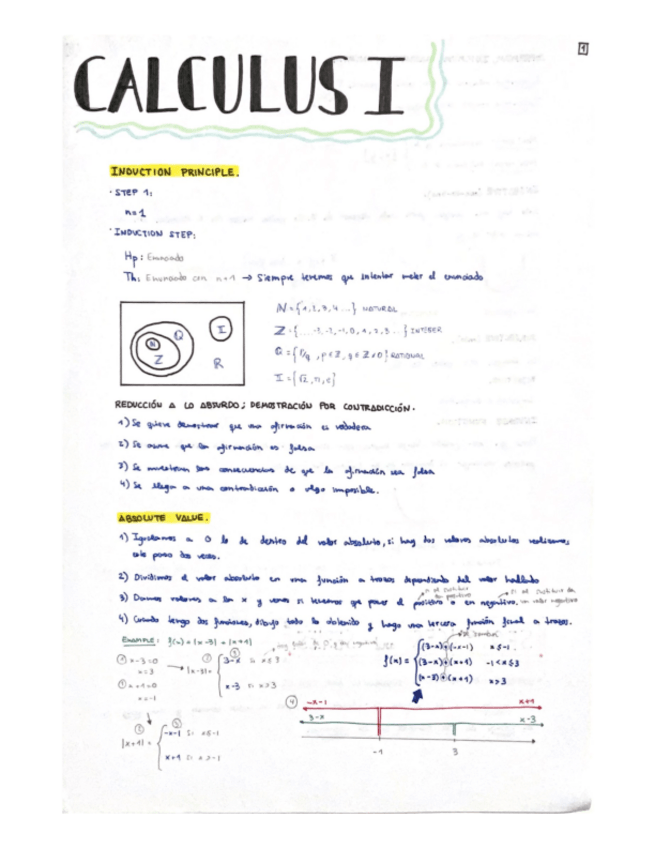 1
CALCULUS I
INDUCTION PRINCIPLE.
· STEP 1:
n=1
· INDUCTION STEP:
Hp: Enunciado
Th: Enunciado con n+1 → Siempre tenemos que intentar meter el enunciado
N Z Q I R
N={1,2,3,4...} NATURAL
Z={...-3,-2,-1,0,1,2,3...} INTEGER
Q={P/q, p∈Z, q∈Z≠0} RATIONAL
I={√2,π,e}
REDUCCIÓN A LO ABSURDO; DEMOSTRACIÓN POR CONTRADICCIÓN.
1) Se quiere demostrar que una afirmación es verdadera
2) Se asume que la afirmación es falsa
3) Se muestran las consecuencias de que la afirmación sea falsa
4) Se llega a una contradicción o algo imposible.
ABSOLUTE VALUE.
1) Igualamos a 0 lo de dentro del valor absoluto, si hay dos valores absolutos realizamos
este paso dos veces.
2) Dividimos el valor absoluto en una función a trozos dependiendo del valor hallado
3) Damos valores a la x y vemos si tenemos que poner el positivo o en negativo,
4) Cuando tengo dos funciones, dibujo todo lo obtenido y hago una tercera función final a trozos.
EXAMPLE: f(x)=|x-3|+|x+1|
① x-3=0
x=3
① x+1=0
x=-1
② |x-3|= ③ 3-x si x≤3
x-3 si x>3
f(x)= (3-x)+(-x-1) x≤-1
(3-x)+(x+1) -1<x≤3
(x-3)+(x+1) x>3
④ -x-1 x+1
3-x x-3
-1 3
② |x+1|= ③ -x-1 si x≤-1
x+1 si x>-1